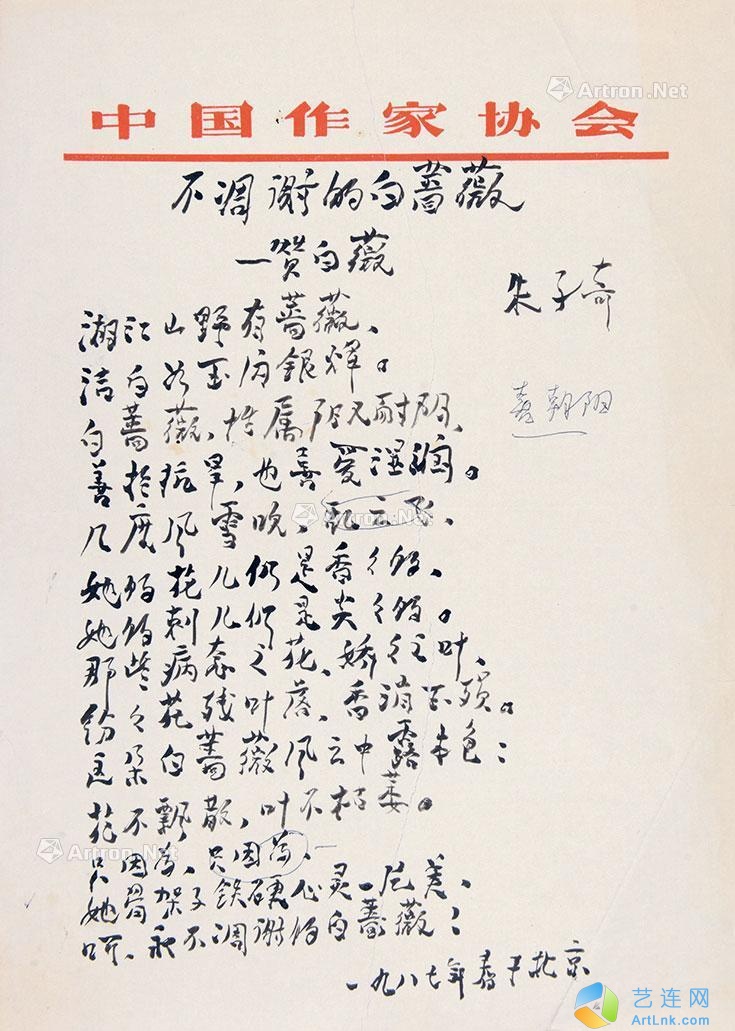 Artron.Net
中国作家协会
不凋谢的白蔷薇
一赞白薇
朱子奇
湖江山野有蔷薇、
洁白如玉闪银辉。
白蔷薇,性属阳又耐阴、
善于抗旱,也喜爱湿润。
几度风雪
她的花儿仍是香
她的刺儿仍是尖
那些病态之花、娇
纷纷花残叶落、香消
这朵白蔷薇风云中露本色:
花不飘散,叶不枯萎。
只因为、只因为、
她骨架子铁硬心灵一片美、
呵、永不凋谢的白蔷薇:
一九八七年春于北京
Artron.Net
Artron.Net
艺连网
ArtLnk.com